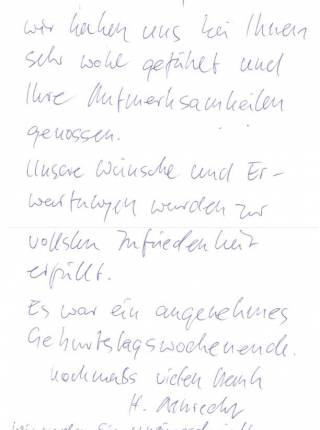 wir haben uns bei Ihnen
sehr wohl gefühlt und
Ihre Aufmerksamkeiten
genossen.
Unsere Wünsche und Er-
wartungen wurden zur
vollsten Zufriedenheit
erfüllt.
Es war ein angenehmes
Geburtstagswochenende.
nochmals vielen Dank
H.